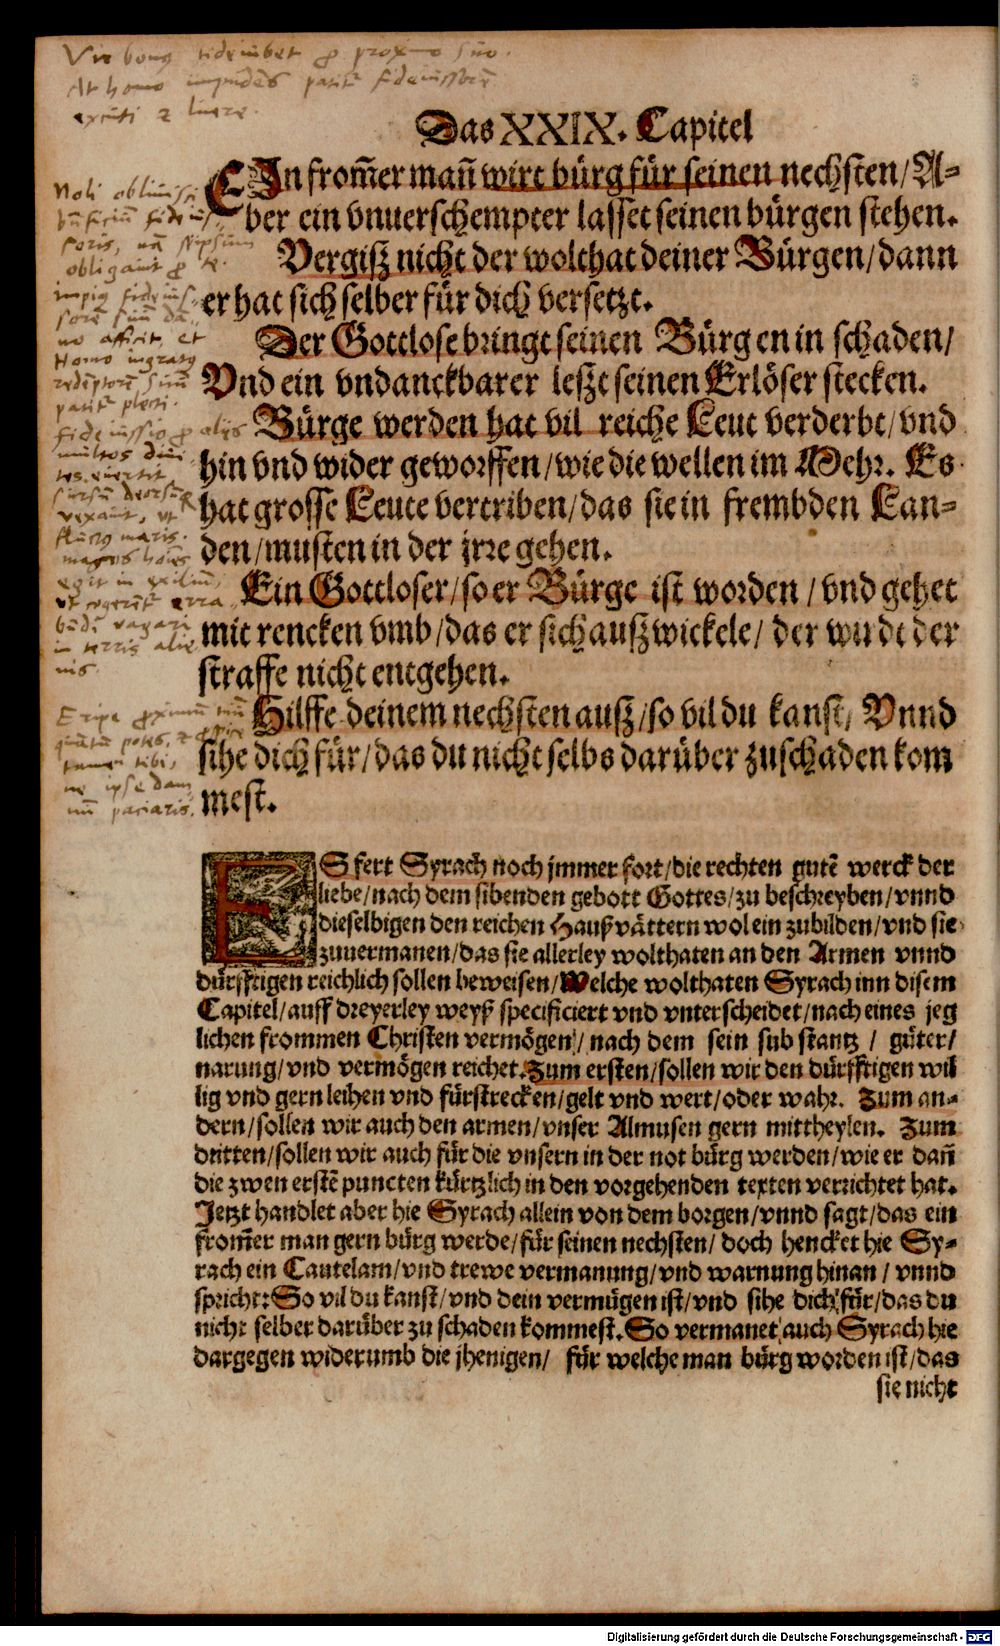 Vir bonus fideiubet ꝓ proximo suo.
At homo impudēs patit fideiussorē
excuti & luere.
Das XXIX. Capitel
EIn from̃er mañ wirt bürg für seinen nechsten/A-
ber ein vnuerschempter lasset seinen bürgen stehen.
Vergiß nicht der wolthat deiner Bürgen/dann
er hat sich selber für dich versetzt.
Der Gottlose bringt seinen Bürgen in schaden/
Vnd ein vndanckbarer leßt seinen Erlöser stecken.
Bürge werden hat vil reiche Leut verderbt/vnd
hin vnd wider geworffen/wie die wellen im Mehr. Es
hat grosse Leute vertriben/das sie in frembden Lan-
den/musten in der jrre gehen.
Ein Gottloser/so er Bürge ist worden/vnd gehet
mit rencken vmb/das er sich außwickele/der wirdt der
straffe nicht entgehen.
Hilffe deinem nechsten auß/so vil du kanst/Vnnd
sihe dich für/das du nicht selbs darüber zuschaden kom
mest.
Noli oblivisci
bñficiū fideius-
soris, nā seipsum
obligavit ꝓ te.
impiꝰ fideius-
sorē suū dā-
no afficit, et
Homo ingratꝰ
redēptorē suū
patit plecti.
Fideiussio ꝓ aliis
multos divi
tes evertit
sursū deorsūq
vexavit, ut
fluctꝰ maris.
magnos hoīes
egit in exiliū,
ut cogerēt erra
būdi vagari
in terris alie
nis.
Eripe ꝓximū tuū
quātū potes,
tamen tibi,
ne ipse dam
nū patiaris.
ES fert Syrach noch jmmer fort/die rechten gutē werck der
liebe/nach dem sibenden gebott Gottes/zu beschreyben/vnnd
dieselbigen den reichen Haußvättern wol ein zubilden/vnd sie
zuuermanen/das sie allerley wolthaten an den Armen vnnd
dürfftigen reichlich sollen beweisen/Welche wolthaten Syrach inn disem
Capitel/auff dreyerley weyß specificiert vnd vnterscheidet/nach eines jeg
lichen frommen Christen vermögen/nach dem sein substantz/güter/
narung/vnd vermögen reichet. Zum ersten/sollen wir den dürfftigen wil
lig vnd gern leihen vnd fürstrecken/gelt vnd wert/oder wahr. Zum an-
dern/sollen wir auch den armen/vnser Almusen gern mittheylen. Zum
dritten/sollen wir auch für die vnsern in der not bürg werden/wie er dañ
die zwen erstē puncten kürtzlich in den vorgehenden texten verrichtet hat.
Jetzt handlet aber hie Syrach allein von dem borgen/vnnd sagt/das ein
from̃er man gern bürg werde/für seinen nechsten/doch hencket hie Sy-
rach ein Cautelam/vnd trewe vermanung/vnd warnung hinan/vnnd
spricht: So vil du kanst/vnd dein vermügen ist/vnd sihe dich für/das du
nicht selber darüber zu schaden kommest. So vermanet auch Syrach hie
dargegen widerumb die jhenigen/für welche man bürg worden ist/das
sie nicht
Digitalisierung gefördert durch die Deutsche Forschungsgemeinschaft - DFG